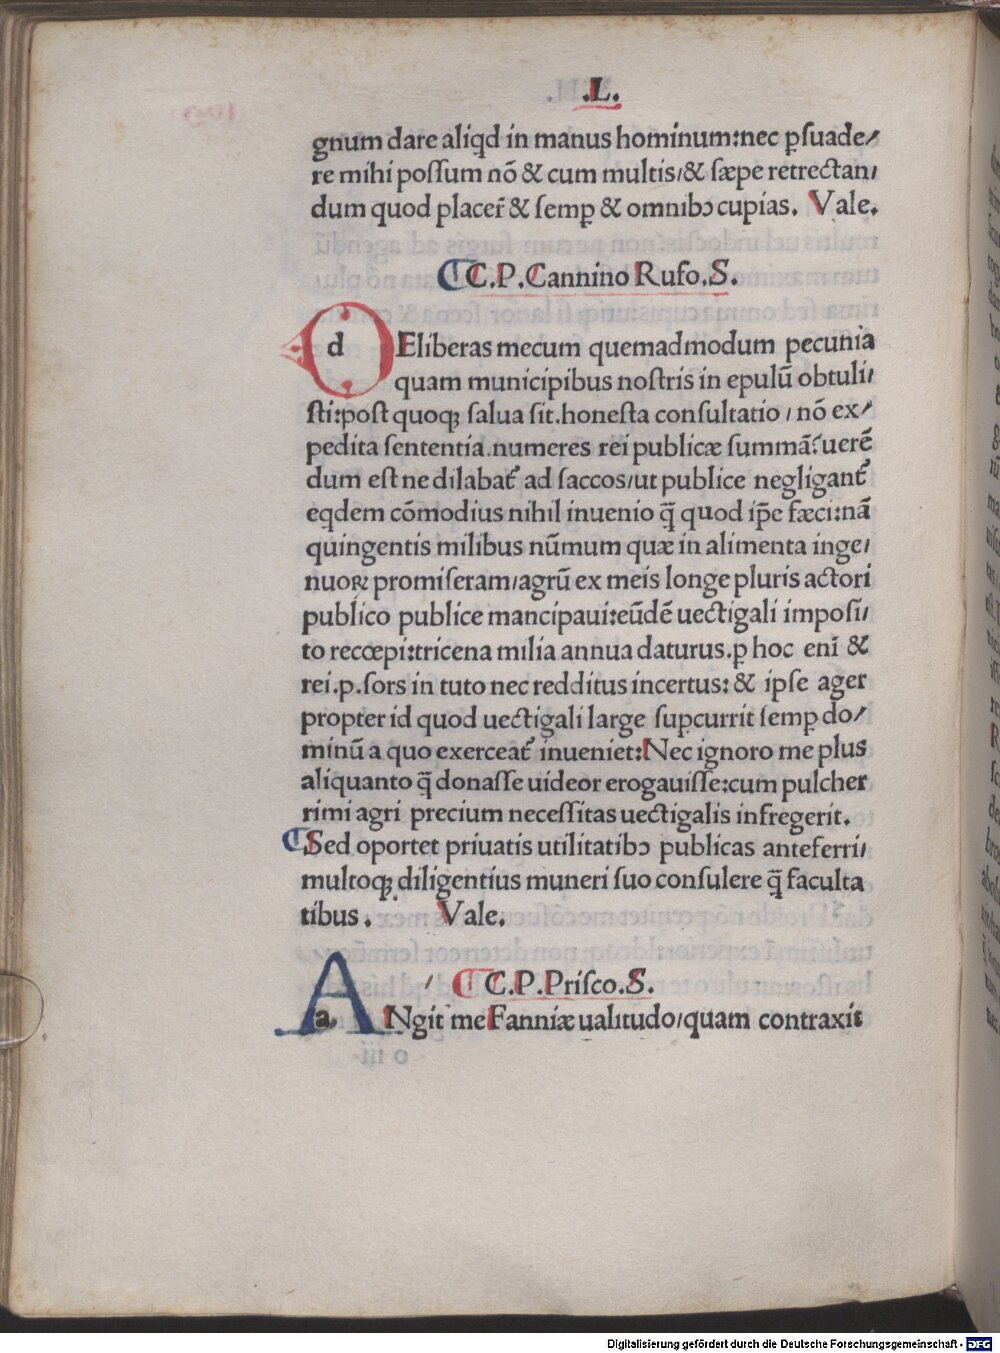 .L.
gnum dare aliqd in manus hominum:nec ꝑsuade/
re mihi possum nō & cum multis/& sæpe retrectan/
dum quod placer̄ & semꝑ & omnibꝰ cupias. Vale.
C.P.Cannino Rufo.S.
d Eliberas mecum quemadmodum pecunia
quam municipibus nostris in epulū obtuli/
sti:post quoqꝫ salua sit.honesta consultatio / nō ex/
pedita sententia.numeres rei publicæ summā?uerē
dum est ne dilabat᷑ ad saccos/ut publice negligant᷑
eqdem cōmodius nihil inuenio q̄ quod ip̄e fæci:nā
quingentis milibus nūmum quæ in alimenta inge/
nuoꝝ promiseram/agrū ex meis longe pluris actori
publico publice mancipaui:eūdē uectigali imposi/
to reccœpi:tricena milia annua daturus.ꝑ hoc enī &
rei.p.sors in tuto nec redditus incertus: & ipse ager
propter id quod uectigali large suꝑcurrit semꝑ do/
minū a quo exerceat᷑ inueniet:Nec ignoro me plus
aliquanto q̄ donasse uideor erogauisse:cum pulcher
rimi agri precium necessitas uectigalis infregerit.
Sed oportet priuatis utilitatibꝰ publicas anteferri/
multoqꝫ diligentius muneri suo consulere q̄ faculta
tibus. Vale.
C.P.Prisco.S.
a Ngit me Fanniæ ualitudo/quam contraxit
Digitalisierung gefördert durch die Deutsche Forschungsgemeinschaft - DFG